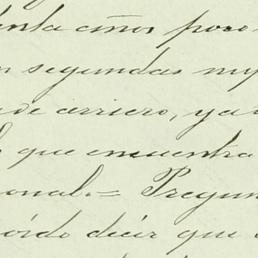 enta años poco
segundas nup
de arriero, ya
que encuentra
ional.= Pregun
oído decir que